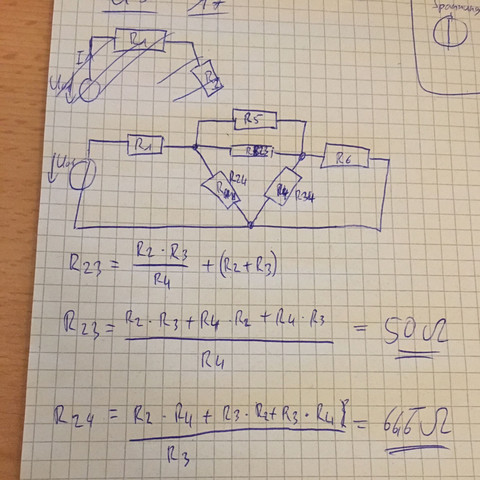 R1
I
R5
R1
R23
R6
R24
R34
R23 = R2 · R3 / R4 + (R2 + R3)
R23 = R2 · R3 + R4 · R2 + R4 · R3 / R4 = 50 Ω
R24 = R2 · R4 + R3 · R2 + R3 · R4 / R3 = 66,6 Ω